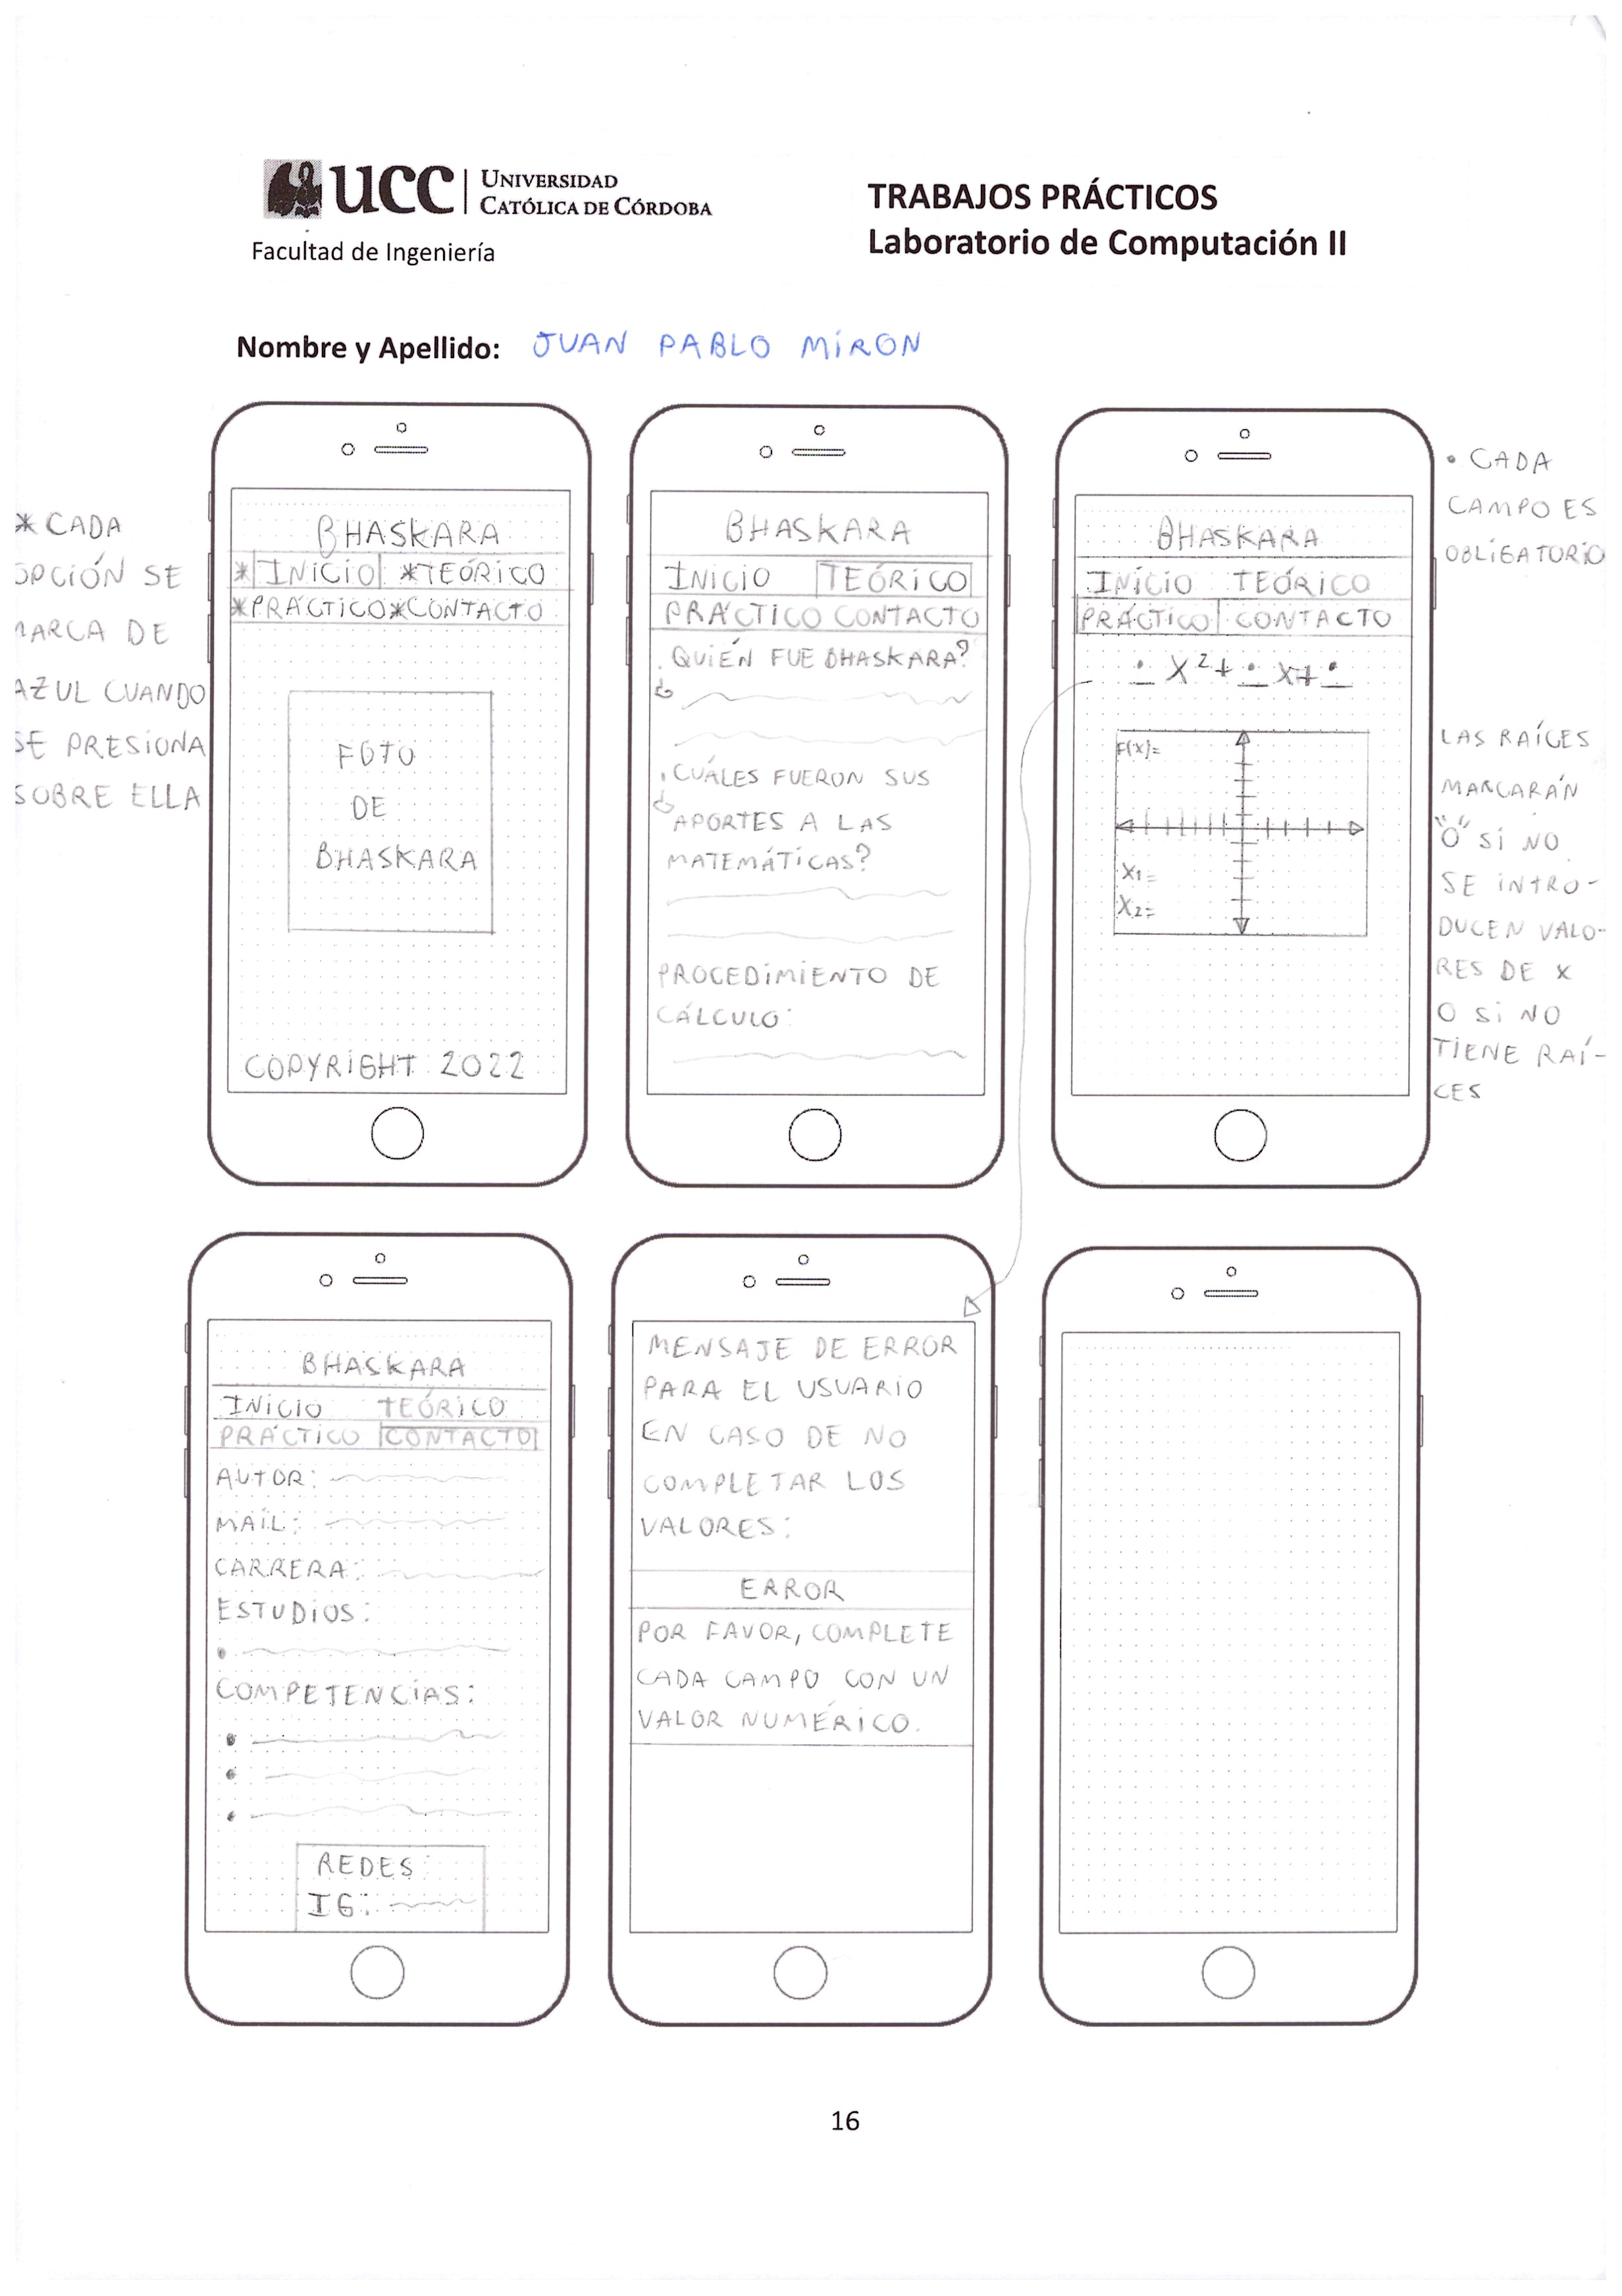 UCC
UNIVERSIDAD
CATÓLICA DE CÓRDOBA
Facultad de Ingeniería
TRABAJOS PRÁCTICOS
Laboratorio de Computación II
Nombre y Apellido: JUAN PABLO MIRON
* CADA
OPCIÓN SE
MARCA DE
AZUL CUANDO
SE PRESIONA
SOBRE ELLA
BHASKARA
* INICIO *TEÓRICO
*PRÁCTICO *CONTACTO
FOTO
DE
BHASKARA
COPYRIGHT 2022
BHASKARA
INICIO TEÓRICO
PRÁCTICO CONTACTO
. QUIÉN FUE BHASKARA?
. CUÁLES FUERON SUS
APORTES A LAS
MATEMÁTICAS?
PROCEDIMIENTO DE
CÁLCULO:
BHASKARA
INICIO TEÓRICO
PRÁCTICO CONTACTO
_ X²+ _ X+ _
F(X)=
X1=
X2=
• CADA
CAMPO ES
OBLIGATORIO
LAS RAÍCES
MARCARÁN
"O" SI NO
SE INTRO-
DUCEN VALO-
RES DE X
O SI NO
TIENE RAÍ-
CES
BHASKARA
INICIO TEÓRICO
PRÁCTICO CONTACTO
AUTOR:
MAIL:
CARRERA:
ESTUDIOS:
COMPETENCIAS:
REDES
IG:
MENSAJE DE ERROR
PARA EL USUARIO
EN CASO DE NO
COMPLETAR LOS
VALORES:
ERROR
POR FAVOR, COMPLETE
CADA CAMPO CON UN
VALOR NUMÉRICO.
16